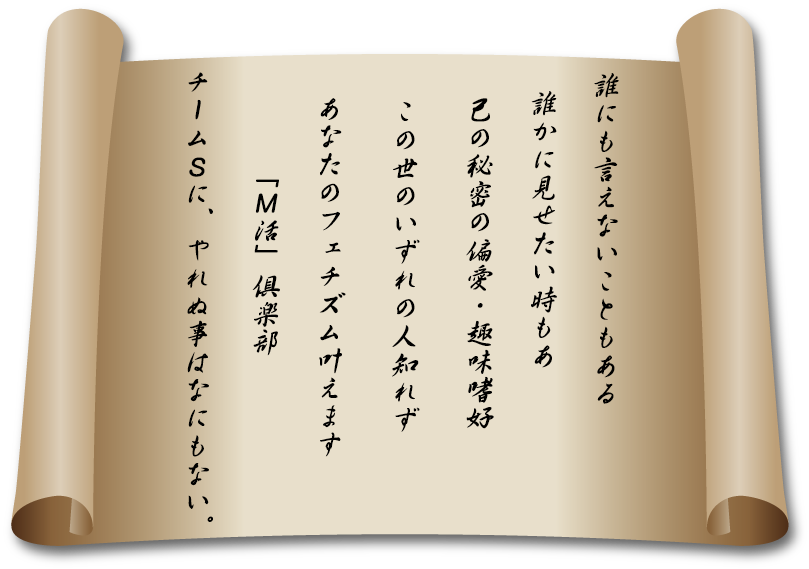 誰にも言えないこともある
誰かに見せたい時もあ
己の秘密の偏愛・趣味嗜好
この世のいずれの人知れず
あなたのフェチズム叶えます
「M活」倶楽部
チームSに、やれぬ事はなにもない。